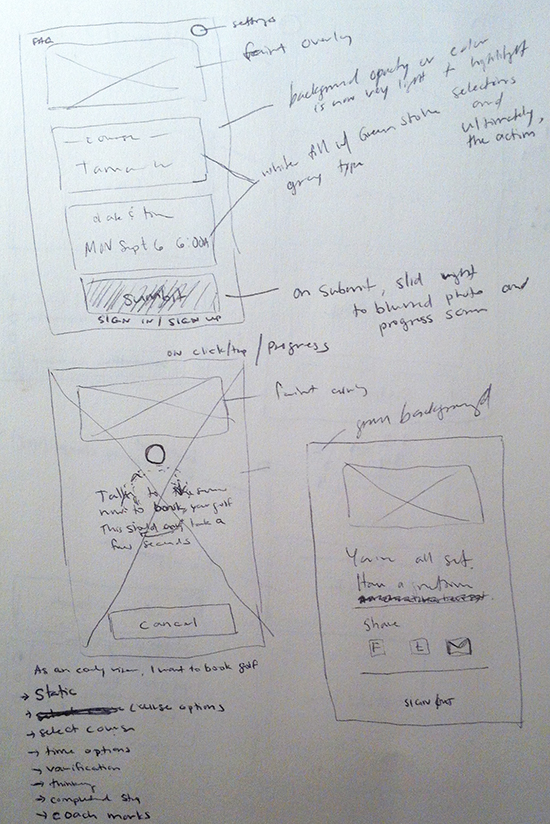 settings
FAQ
faint overlay
background opacity or color
is now very light to highlight
selections
and
ultimately,
the action
course
white fill w/ Green stroke
gray type
date & time
MON Sept 6 6:00A
Submit
on submit, slid right
to blurred photo and
progress screen
SIGN IN / SIGN UP
on click/tap / Progress
faint
green background
Talking to the
now to book your golf
This should only take a
few seconds
Cancel
You're all set.
Have a
Share
F t
SIGN OUT
As an early user, I want to book golf
→ Static
→ course options
→ select course
→ time options
→ varification
→ thinking
→ completed
→ coach marks